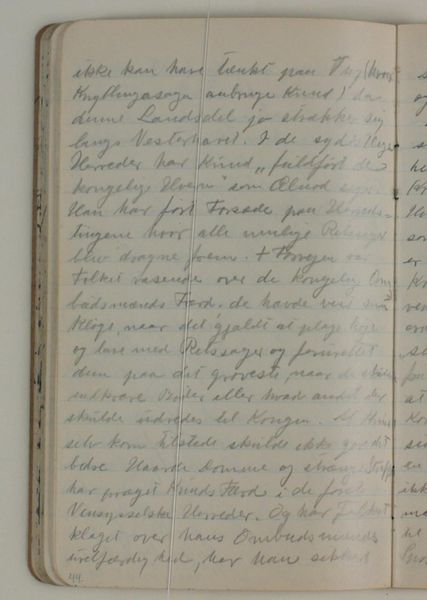 ikke kan have tænkt paa Thy (hvor
Knytlingasaga anbringe Knud) da
denne Landsdel jo strækker sig
langs Vesterhavet. I de sydvestlige
Herreder har Knud "fuldført de
kongelige Hverv" som Ælnod siger.
Han har ført Forsæde paa Herreds-
tingene hvor alle mulige Retssager
blev dragne frem. + Forvejen var
Folket rasende over de kongelige Om-
budsmænds Færd. de havde vist sig
kloge, naar det gjaldt at plage
og lave med Retssager og forurettet
dem paa det groveste, naar de skulde
indkræve Bøder eller hvad andet der
skulde udredes til Kongen. At Knud
selv kom tilstede skulde ikke gøre det
bedre Haarde Domme og strænge Straffe
har præget Knuds Færd i de første
Vensysselske Herreder. Og har Folket
klaget over hans Ombudsmænds
uretfærdighed, har han sikkert
44